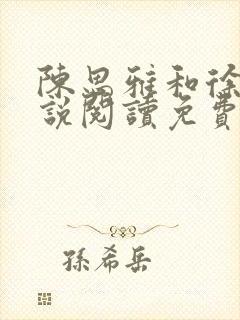 陳思雅和徐
說閱讀免費
孫希岳